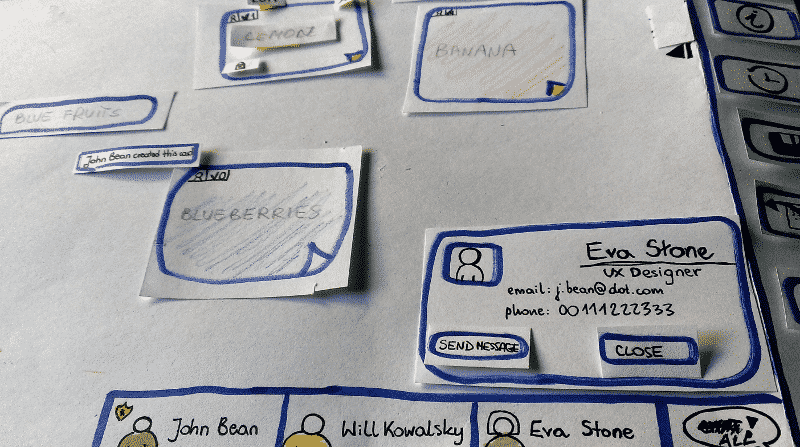 LEMON
BANANA
BLUE FRUITS
John Bean created this card
BLUEBERRIES
Eva Stone
UX Designer
email: j.bean@dot.com
phone: 00111222333
SEND MESSAGE
CLOSE
John Bean
Will Kowalsky
Eva Stone
ALL